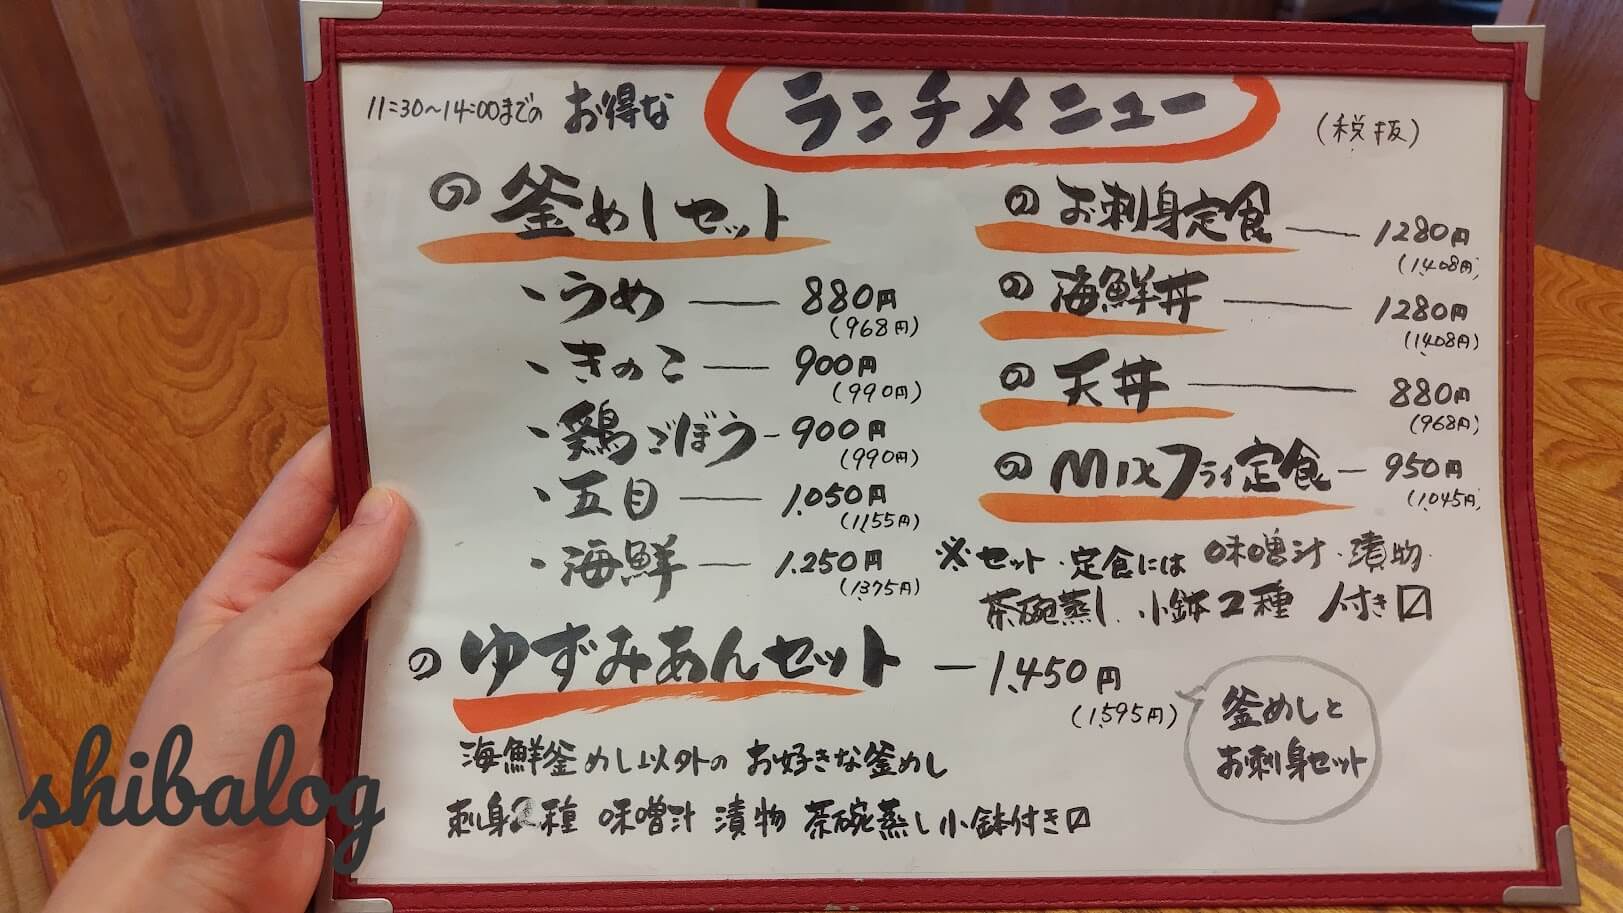 11:30〜14:00までの お得な ランチメニュー (税抜)
の 釜めしセット
・うめ 880円
(968円)
・きのこ 900円
(990円)
・鶏ごぼう 900円
(990円)
・五目 1,050円
(1,155円)
・海鮮 1,250円
(1,375円)
の お刺身定食 1280円
(1,408円)
の 海鮮丼 1280円
(1,408円)
の 天丼 880円
(968円)
の MIXフライ定食 950円
(1,045円)
※セット・定食には 味噌汁・漬物
茶碗蒸し 小鉢2種 付き〼
の ゆずみあんセット 1,450円
(1,595円)
釜めしと
お刺身セット
海鮮釜めし以外の お好きな釜めし
刺身2種 味噌汁 漬物 茶碗蒸し 小鉢付き〼
shibalog